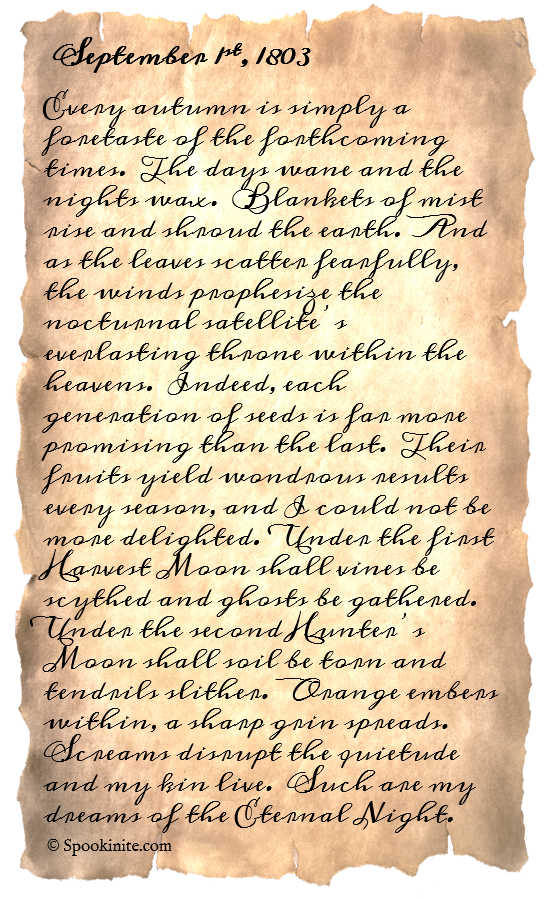 September 1st, 1803
Every autumn is simply a
foretaste of the forthcoming
times. The days wane and the
nights wax. Blankets of mist
rise and shroud the earth. And
as the leaves scatter fearfully,
the winds prophesize the
nocturnal satellite's
everlasting throne within the
heavens. Indeed, each
generation of seeds is far more
promising than the last. Their
fruits yield wondrous results
every season, and I could not be
more delighted. Under the first
Harvest Moon shall vines be
scythed and ghosts be gathered.
Under the second Hunter's
Moon shall soil be torn and
tendrils slither. Orange embers
within, a sharp grin spreads.
Screams disrupt the quietude
and my kin live. Such are my
dreams of the Eternal Night.
© Spookinite.com